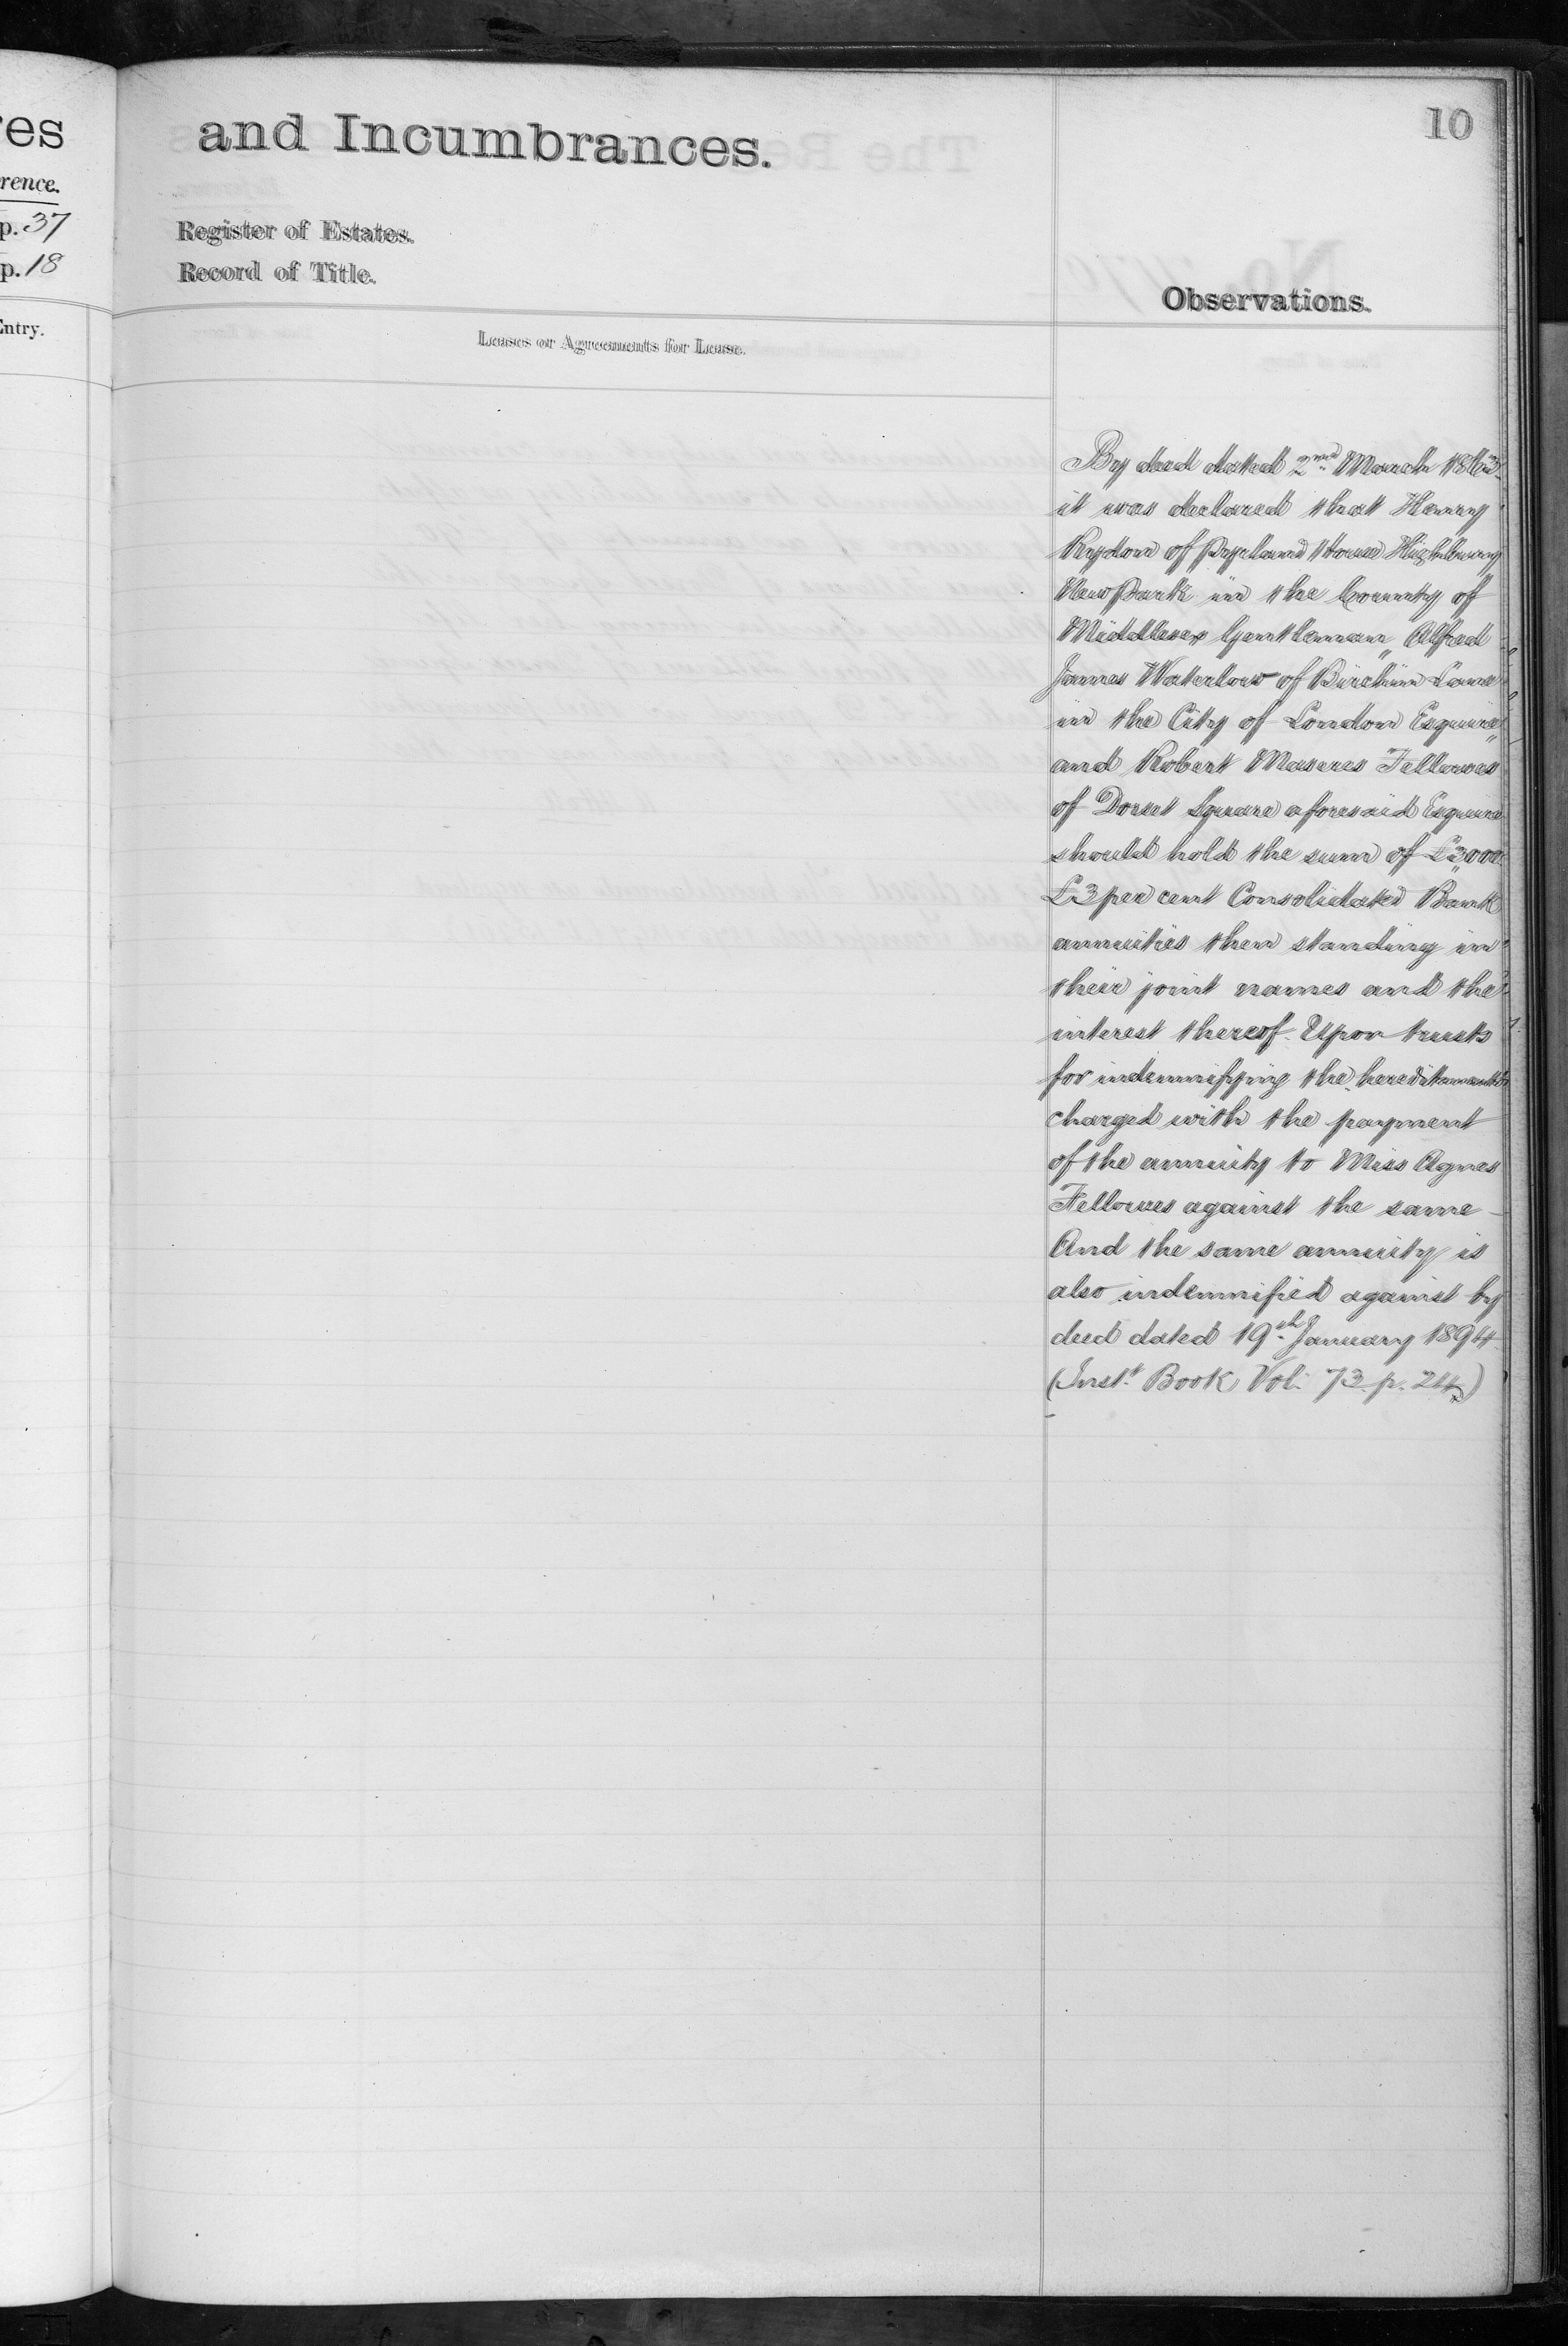 res
rence.
p. 37
p. 18
Entry.
and Incumbrances.
10
Register of Estates.
Record of Title.
Observations.
Leases or Agreements for Lease.
By deed dated 2nd March 1863
it was declared that Henry
Rydon of Pyrland House Highbury
New Park in the County of
Middlesex Gentleman, Alfred
James Waterlow of Birchin Lane
in the City of London Esquire
and Robert Maseres Fellowes
of Dorset Square aforesaid Esquire
should hold the sum of £3,000
£3 per cent Consolidated Bank
annuities then standing in
their joint names and the
interest thereof Upon trusts
for indemnifying the hereditaments
charged with the payment
of the annuity to Miss Agnes
Fellowes against the same
And the same annuity is
also indemnified against by
deed dated 19th January 1894
(Inst. Book Vol. 73 p. 244)